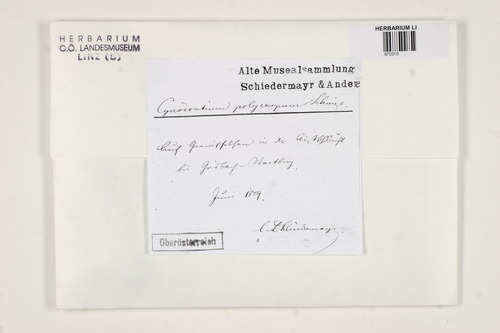 HERBARIUM
O.Ö. LANDESMUSEUM
LINZ (U)
HERBARIUM LI
Alte Musealsammlung
Schiedermayr & Ander
Cynodontium polycarpum Schimp.
Auf Granitfelsen in der
bei
Juni
C. Schiedermayr
Oberösterreich